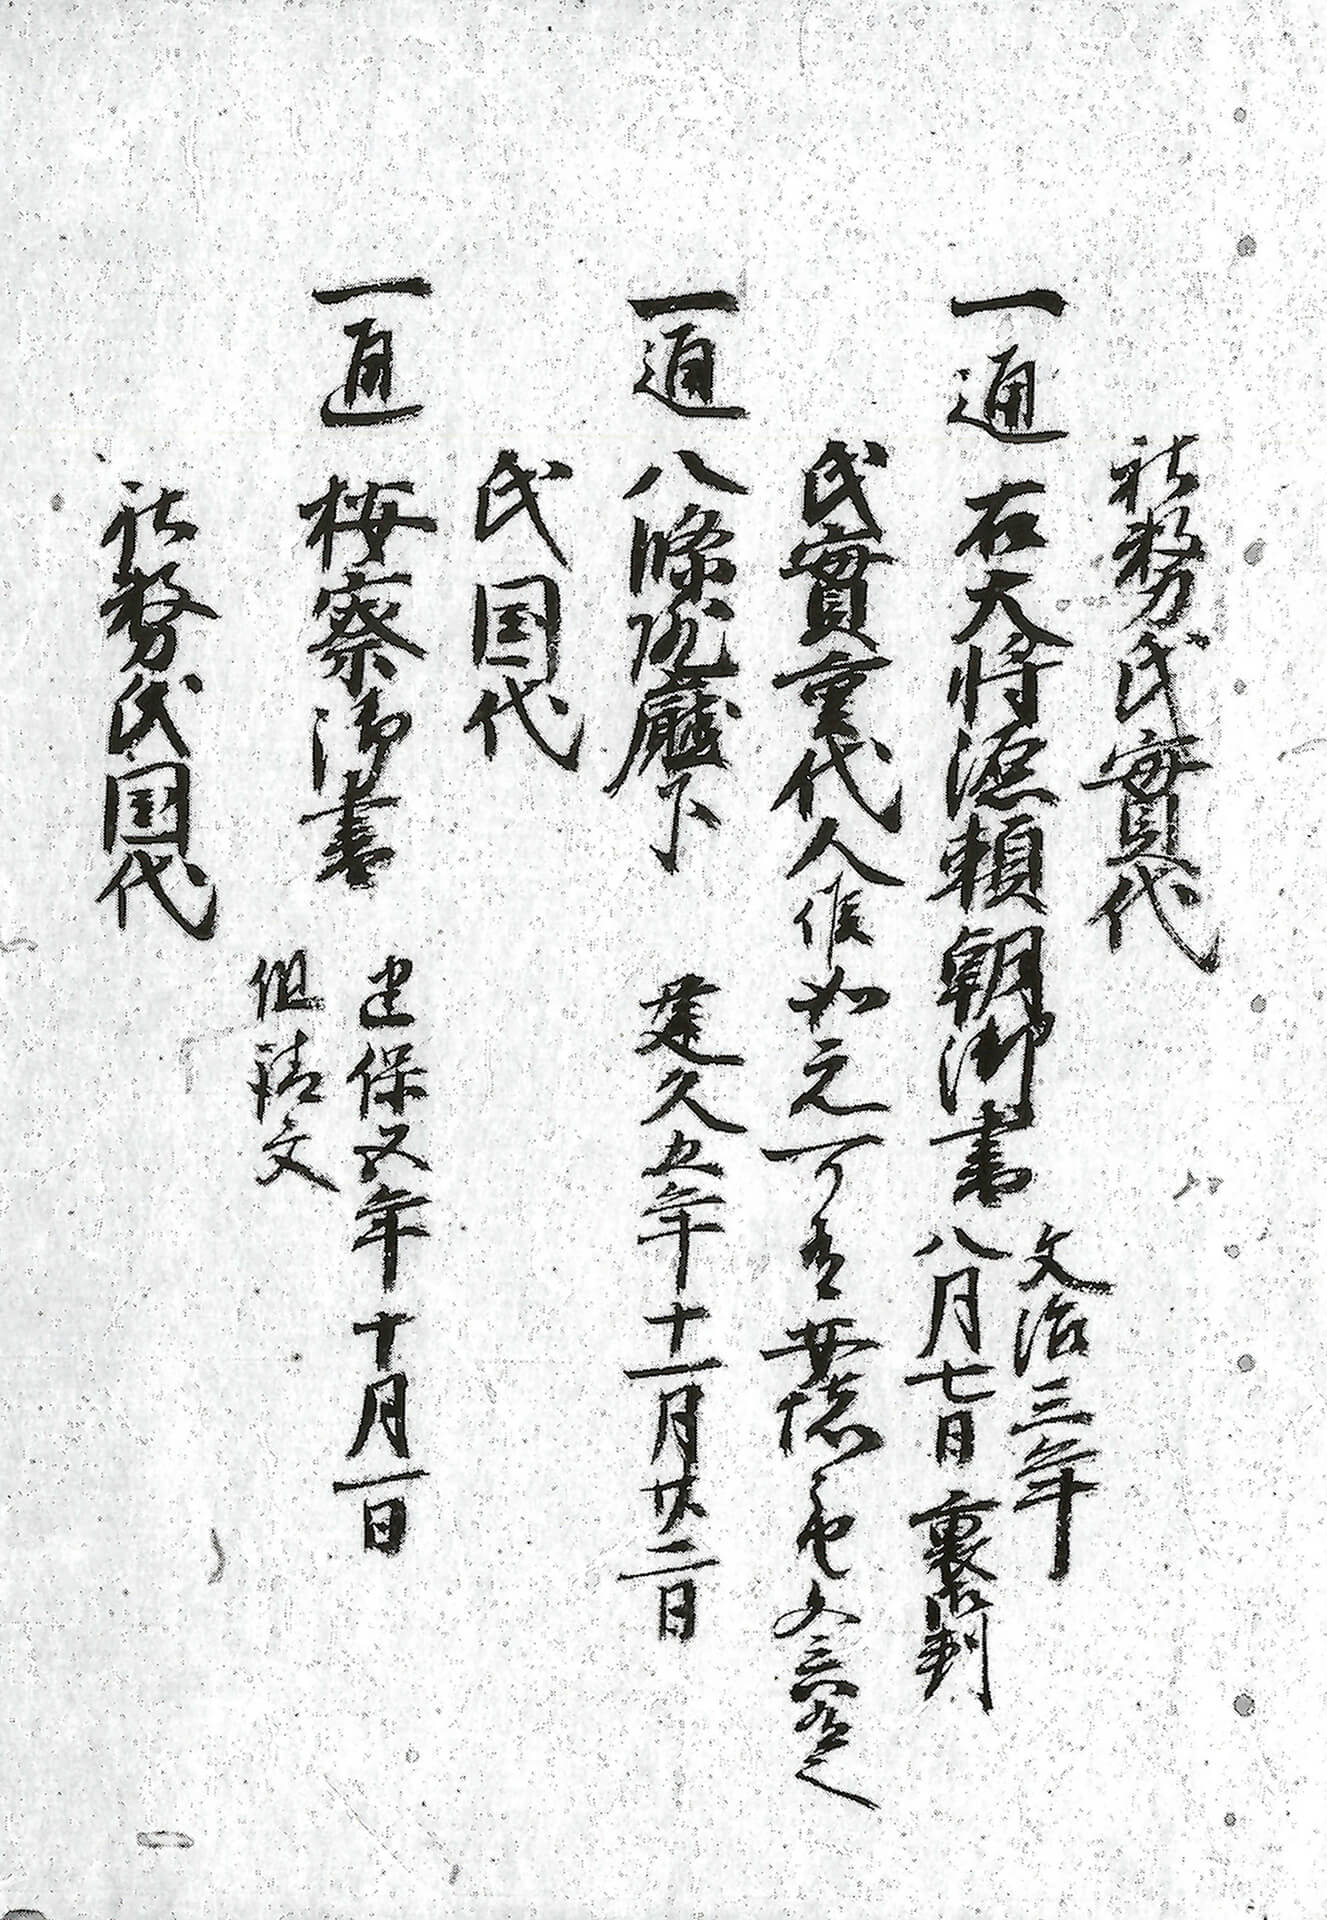 社務氏實代
一通 右大将源頼朝御書 文治三年
八月七日 裏御判
氏實重代人候如元可有安堵 文言在之
一通 八條院廳下 建久五年十一月廿二日
氏国代
一通 按察御書 建保五年十月一日
但請文
社務氏国代